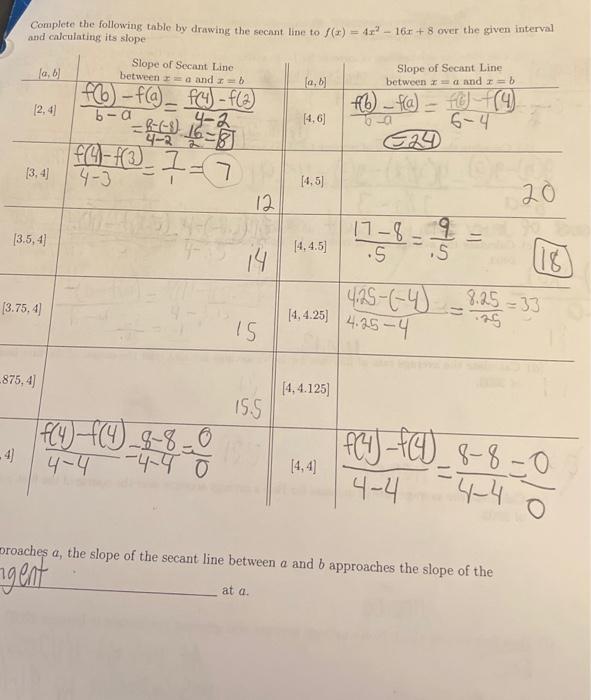 Complete the following table by drawing the secant line to f(x) = 4x² − 16x + 8 over the given interval
and calculating its slope
[a, b] Slope of Secant Line between x = a and x = b [a, b] Slope of Secant Line between x = a and x = b
[2, 4] f(b)-f(a)/b-a = f(4)-f(2)/4-2
= 8-(-8)/4-2 16/2 = 8
[4, 6] f(b)-f(a)/b-a = f(6)-f(4)/6-4
= 24
[3, 4] f(4)-f(3)/4-3 = 7/1 = 7
12
[4, 5] 20
[3.5, 4] 14
[4, 4.5] 17-8/.5 = 9/.5 =
18
[3.75, 4] 15
[4, 4.25] 4.25-(-4)/4.25-4 = 8.25/.25 = 33
.875, 4] 15.5
[4, 4.125]
4] f(4)-f(4)/4-4 = 8-8/4-4 = 0/0
[4, 4] f(4)-f(4)/4-4 = 8-8/4-4 = 0/0
proaches a, the slope of the secant line between a and b approaches the slope of the
ngent at a.